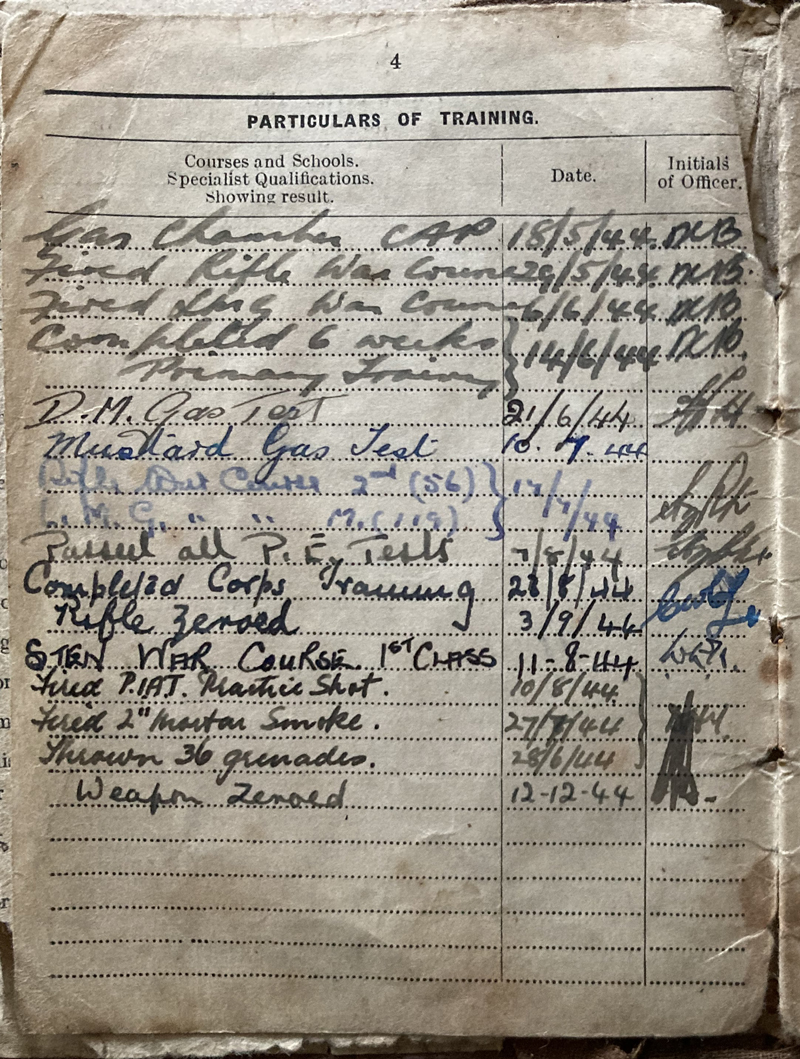 4
PARTICULARS OF TRAINING.
Courses and Schools.
Specialist Qualifications.
Showing result.
Date.
Initials
of Officer.
Gas Chamber CAP 18/5/44
Fired Rifle War Course 29/5/44
Fired LMG War Course 6/6/44
Completed 6 weeks
Primary Training 14/6/44
D.M. Gas Test 21/6/44
Mustard Gas Test 10. 7. 44
Rifle War Course 2nd (56)
L.M.G. " " M.(119) 17/7/44
Passed all P.E. Tests 7/8/44
Completed Corps Training 28/8/44
Rifle Zeroed 3/9/44
STEN WAR COURSE 1ST CLASS 11-8-44
Fired P.IAT. Practice Shot. 10/8/44
Fired 2" Mortar Smoke. 27/7/44
Thrown 36 grenades. 28/6/44
Weapon Zeroed 12-12-44